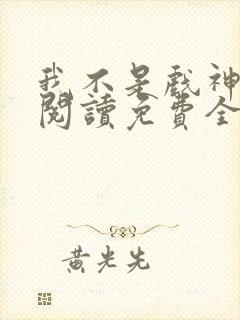 我不是戲神
閱讀免費全
黃光先